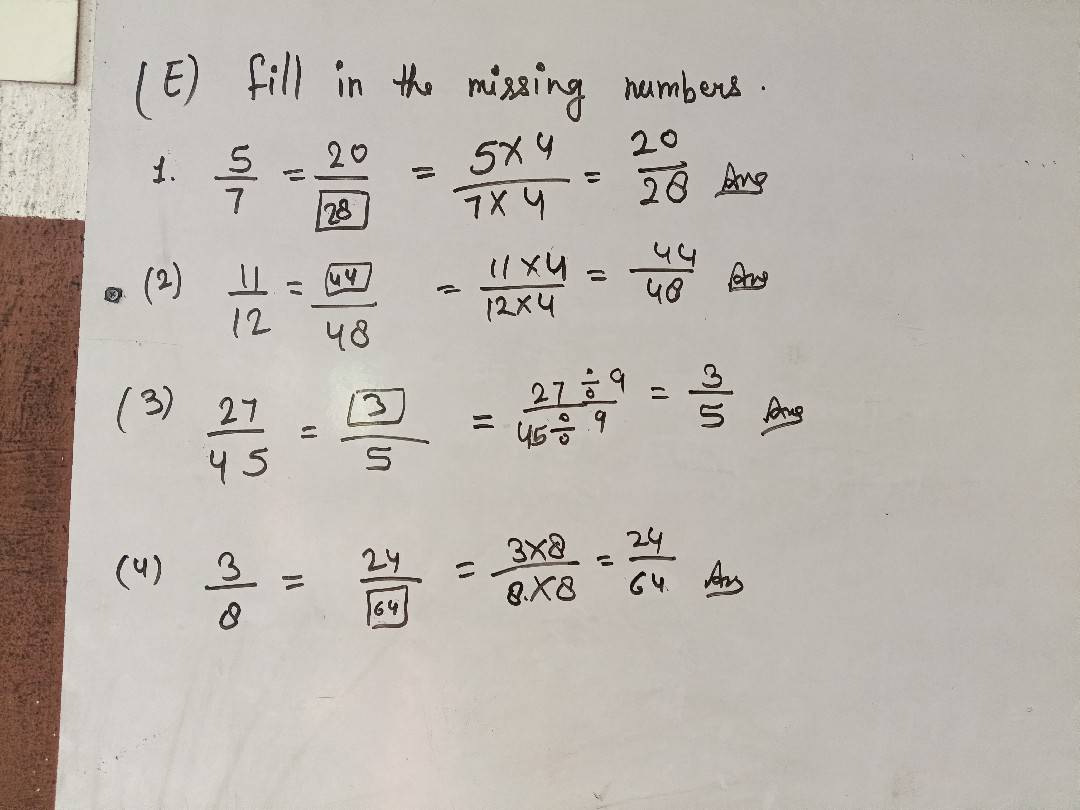 (E) fill in the missing numbers.
1. 5/7 = 20/28 = 5×4/7×4 = 20/28 Ans
(2) 11/12 = 44/48 = 11×4/12×4 = 44/48 Ans
(3) 27/45 = 3/5 = 27÷9/45÷9 = 3/5 Ans
(4) 3/8 = 24/64 = 3×8/8×8 = 24/64 Ans